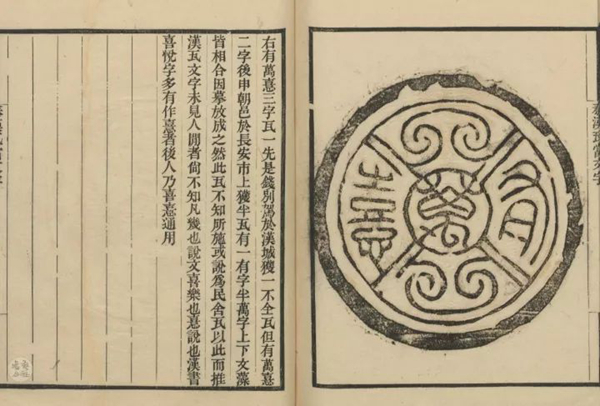 秦漢瓦當文字
有萬憙
右有萬憙三字瓦一先是錢別駕於漢城獲一不全瓦但有萬憙
二字後申朝邑於長安市上獲半瓦有一有字半萬字上下文藻
皆相合因摹放成之然此瓦不知所施或說爲民舍瓦以此而推
漢瓦文字未見人閒者尚不知凡幾也說文喜樂也憙說也漢書
喜悅字多有作憙者後人乃喜憙通用